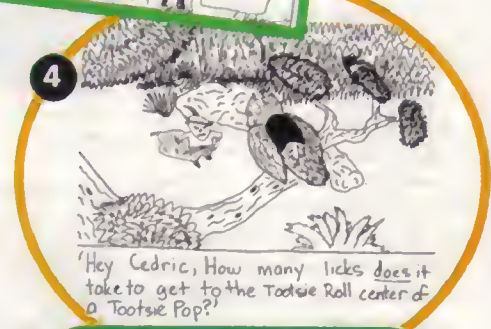 4
'Hey Cedric, How many licks does it
take to get to the Tootsie Roll center of
a Tootsie Pop?'